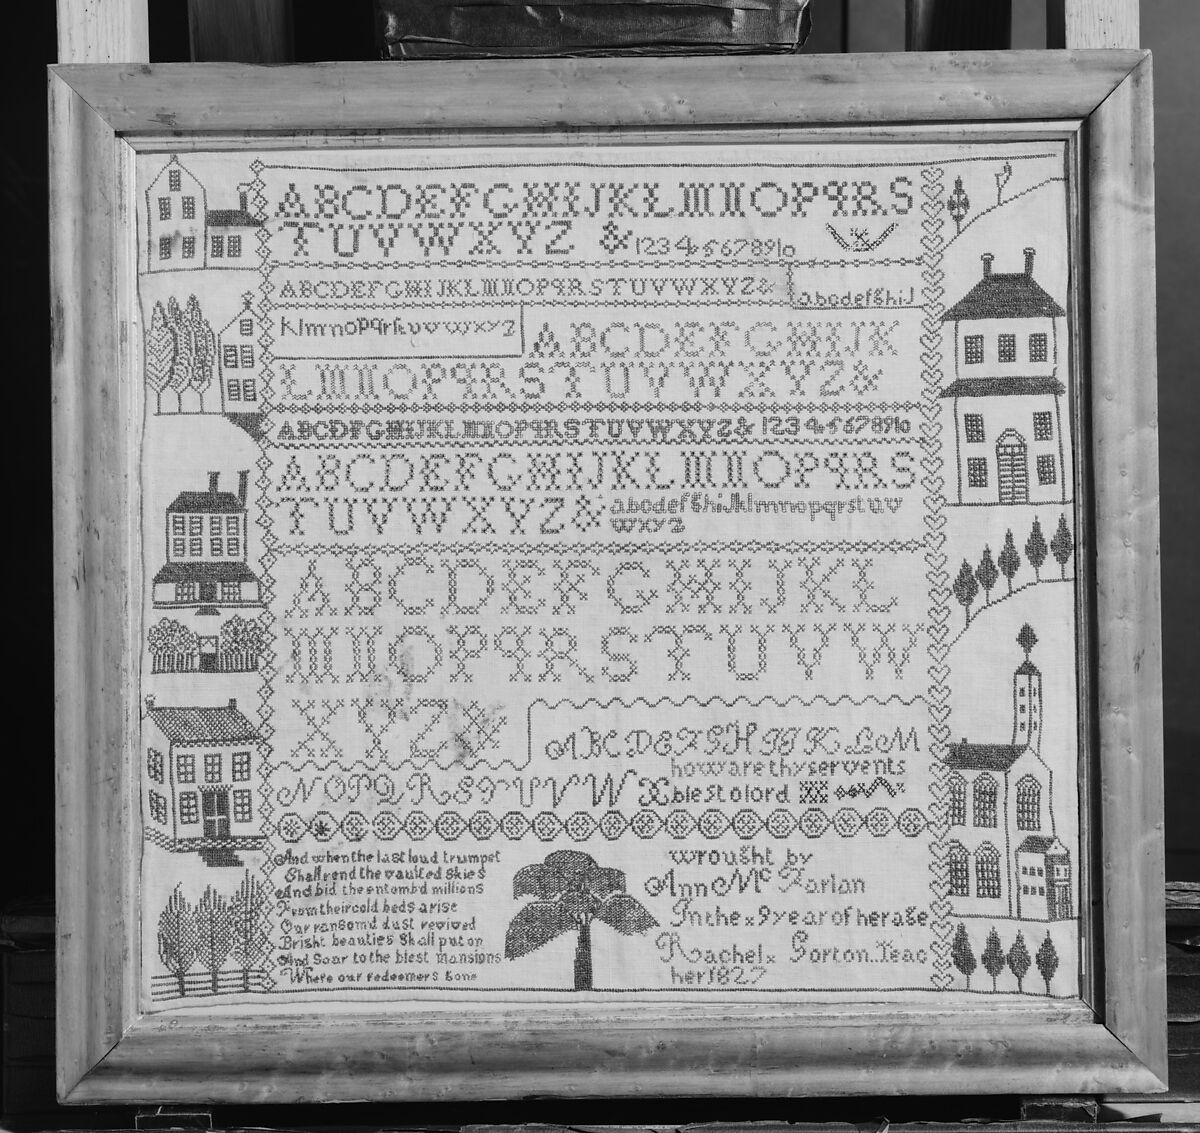 ABCDEFGHIJKLMNOPQRS
TUVWXYZ & 12345678910
ABCDEFGHIJKLMNOPQRSTUVWXYZ&
abcdefghij
klmnopqrstuvwxyz
ABCDEFGHIJK
LMNOPQRSTUVWXYZ&
ABCDEFGHIJKLMNOPQRSTUVWXYZ& 12345678910
ABCDEFGHIJKLMNOPQRS
TUVWXYZ& abcdefghijklmnopqrstuv
wxyz
ABCDEFGHIJKL
MNOPQRSTUVW
XYZ&
ABCDEFGHIJKLM
how are thy servents
NOPQRSTUVWX blest o lord
And when the last loud trumpet
Shall rend the vaulted skies
And bid the entombd millions
From their cold beds arise
Our ransomd dust revived
Bright beauties Shall put on
And Soar to the blest mansions
Where our redeemers gone
wrought by
Ann Mc Farlan
In the x 9 year of her age
Rachel x Gorton.. Teac
her 1827